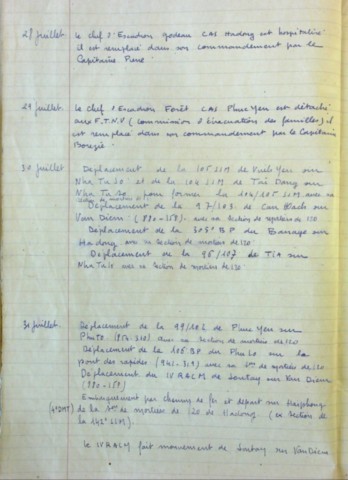 28 juillet. Le chef d'Escadron Godeau CAS Hadong est hospitalisé
il est remplacé dans son commandement par le
Capitaine
29 juillet. Le chef d'Escadron Forêt CAS Phuc Yen est détaché
aux F.T.N.V (commission d'évacuation des familles) il
est remplacé dans son commandement par le Capitaine
30 juillet Déplacement de la 105 SSM de Vinh Yen sur
Nha Ta So et de la 104 SSM de Tai Dong sur
Nha Ta So pour former la 104/105 SSM avec sa
Section de mortiers
Déplacement de la 97/103 de Can sur
Van Diem (880-158) avec sa Section de mortiers de 120
Déplacement de la BP du Barrage sur
Hadong avec sa Section de mortiers de 120
Déplacement de la 95/107 de TIA sur
Nha Ta So avec sa Section de mortiers de 120
31 juillet. Déplacement de la 99/102 de Phuc Yen sur
avec sa Section de mortiers de 120
Déplacement de la BP du Phu Lo sur le
pont des rapides avec sa Son de mortiers de 120
Déplacement du IV RALM de Sontay sur Van Diem
(880-158)
Embarquement par chemin de fer et départ sur Haïphong
de la Son de mortiers de 120 de Hadong (ex Section de
la 142° SSM).
Le IV RALM fait mouvement de Sontay sur Van Diem